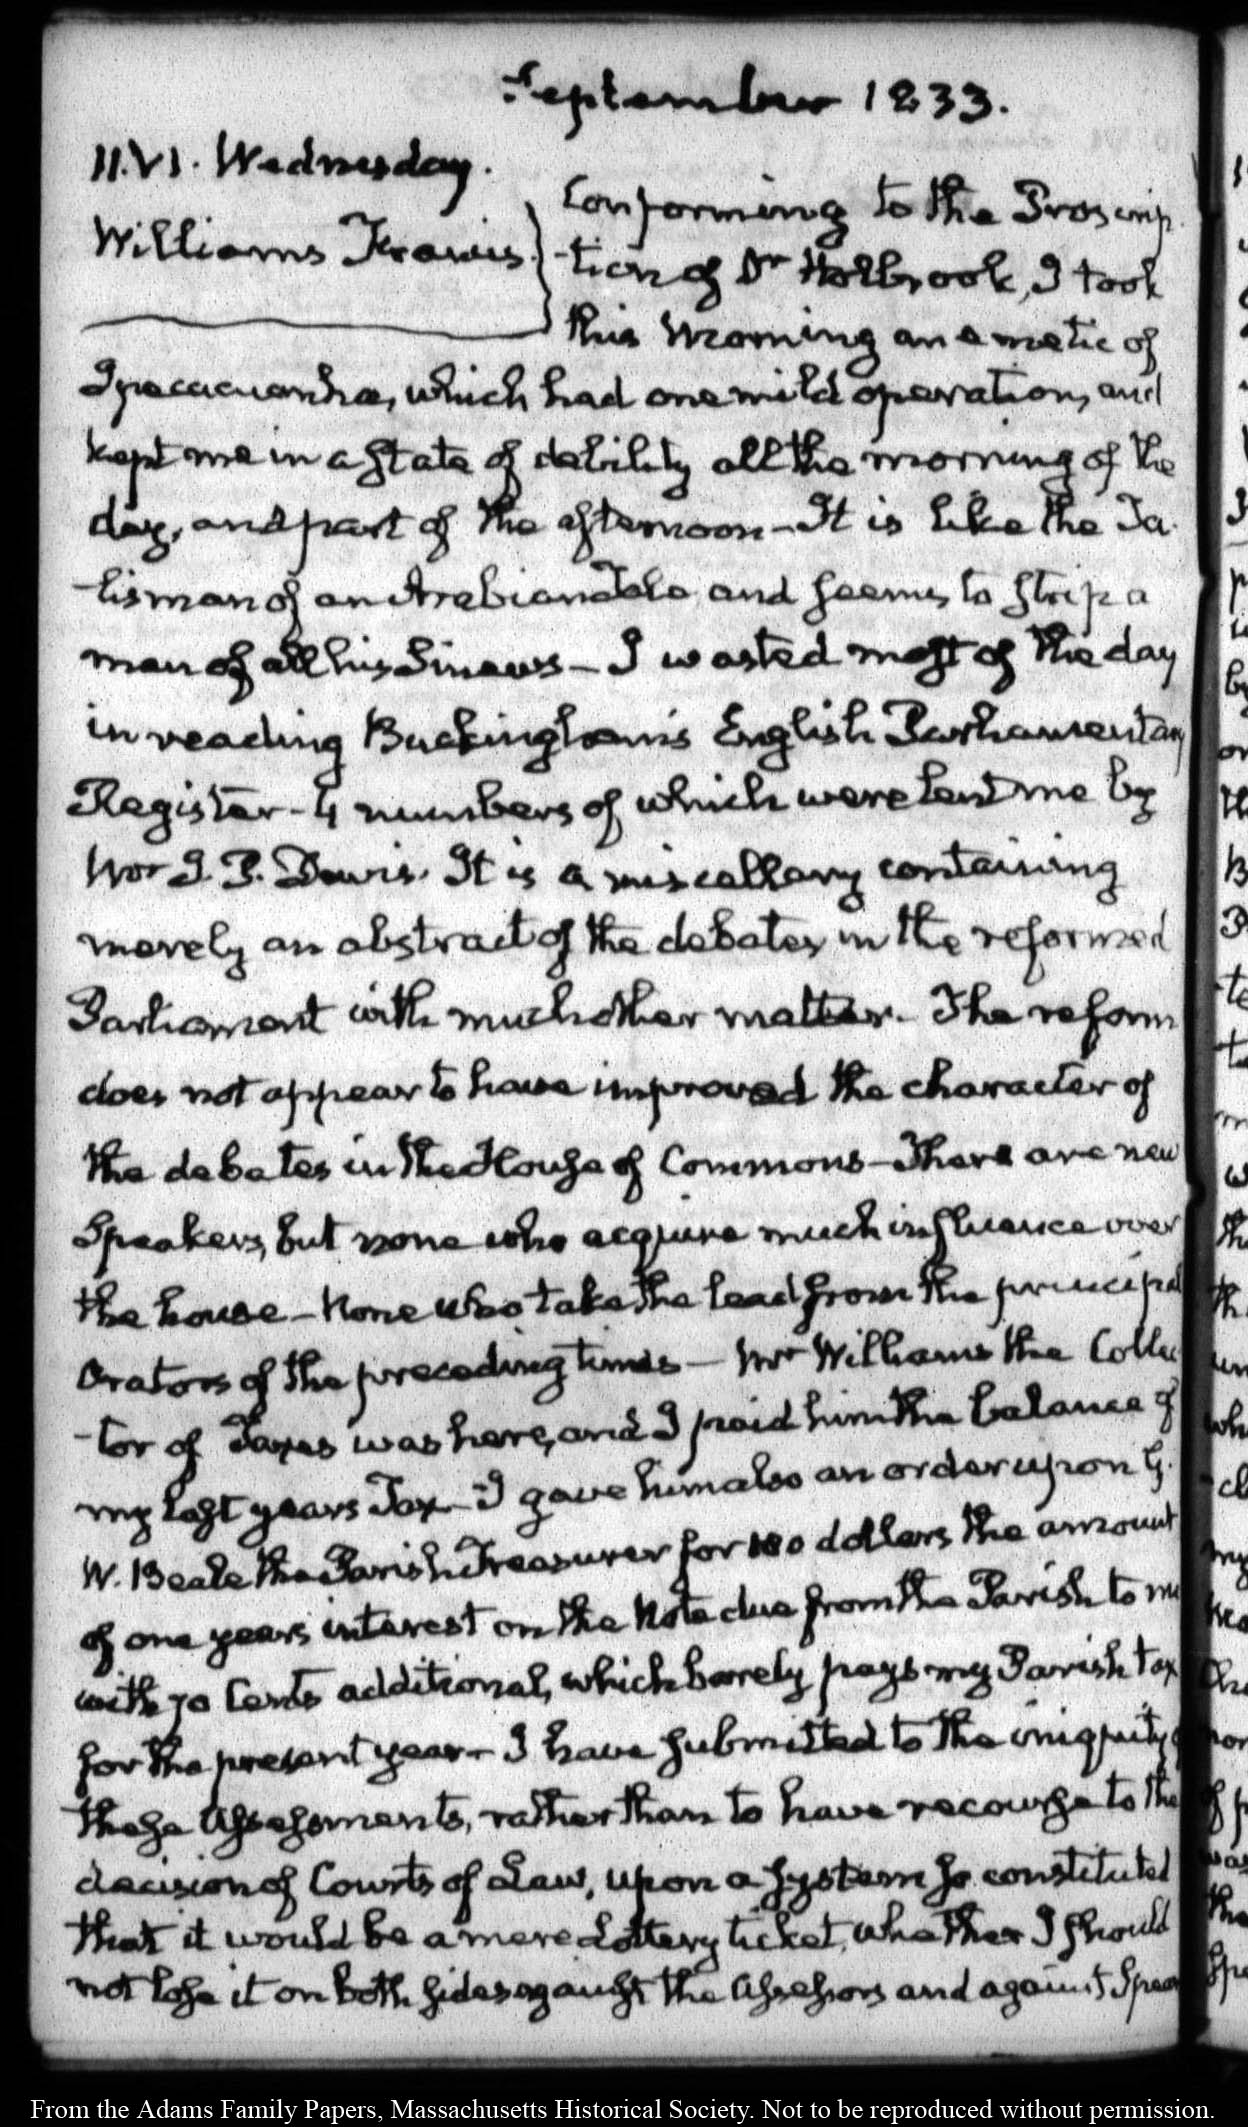 September 1833.
11. VI. Wednesday.
Williams Travis.
Conforming to the Proscrip
-tion of Dr Holbrook, I took
this Morning an emetic of
Ipecacuanha, which had one mild operation, and
kept me in a state of debility all the morning of the
day, and part of the afternoon – It is like the Ta-
-lisman of an Arabian Tale and seems to strip a
man of all his Sinews – I wasted most of the day
in reading Buckingham's English Parliamentary
Register – 4 numbers of which were lent me by
Mr I. P. Davis. It is a miscellany containing
merely an abstract of the debates in the reformed
Parliament with much other matter. The reform
does not appear to have improved the character of
the debates in the House of Commons – There are new
Speakers, but none who acquire much influence over
the house – None who take the lead from the principal
Orators of the preceding times – Mr Williams the Collec
-tor of Taxes was here, and I paid him the balance of
my last years Tax – I gave him also an order upon G.
W. Beale the Parish Treasurer for 180 dollars the amount
of one years interest on the Note due from the Parish to me
with 70 Cents additional, which barely pays my Parish tax
for the present year – I have submitted to the iniquity of
these Assessments, rather than to have recourse to the
decision of Courts of Law, upon a system so constituted
that it would be a mere Lottery ticket, whether I should
not lose it on both sides against the Assessors and against Spear
From the Adams Family Papers, Massachusetts Historical Society. Not to be reproduced without permission.